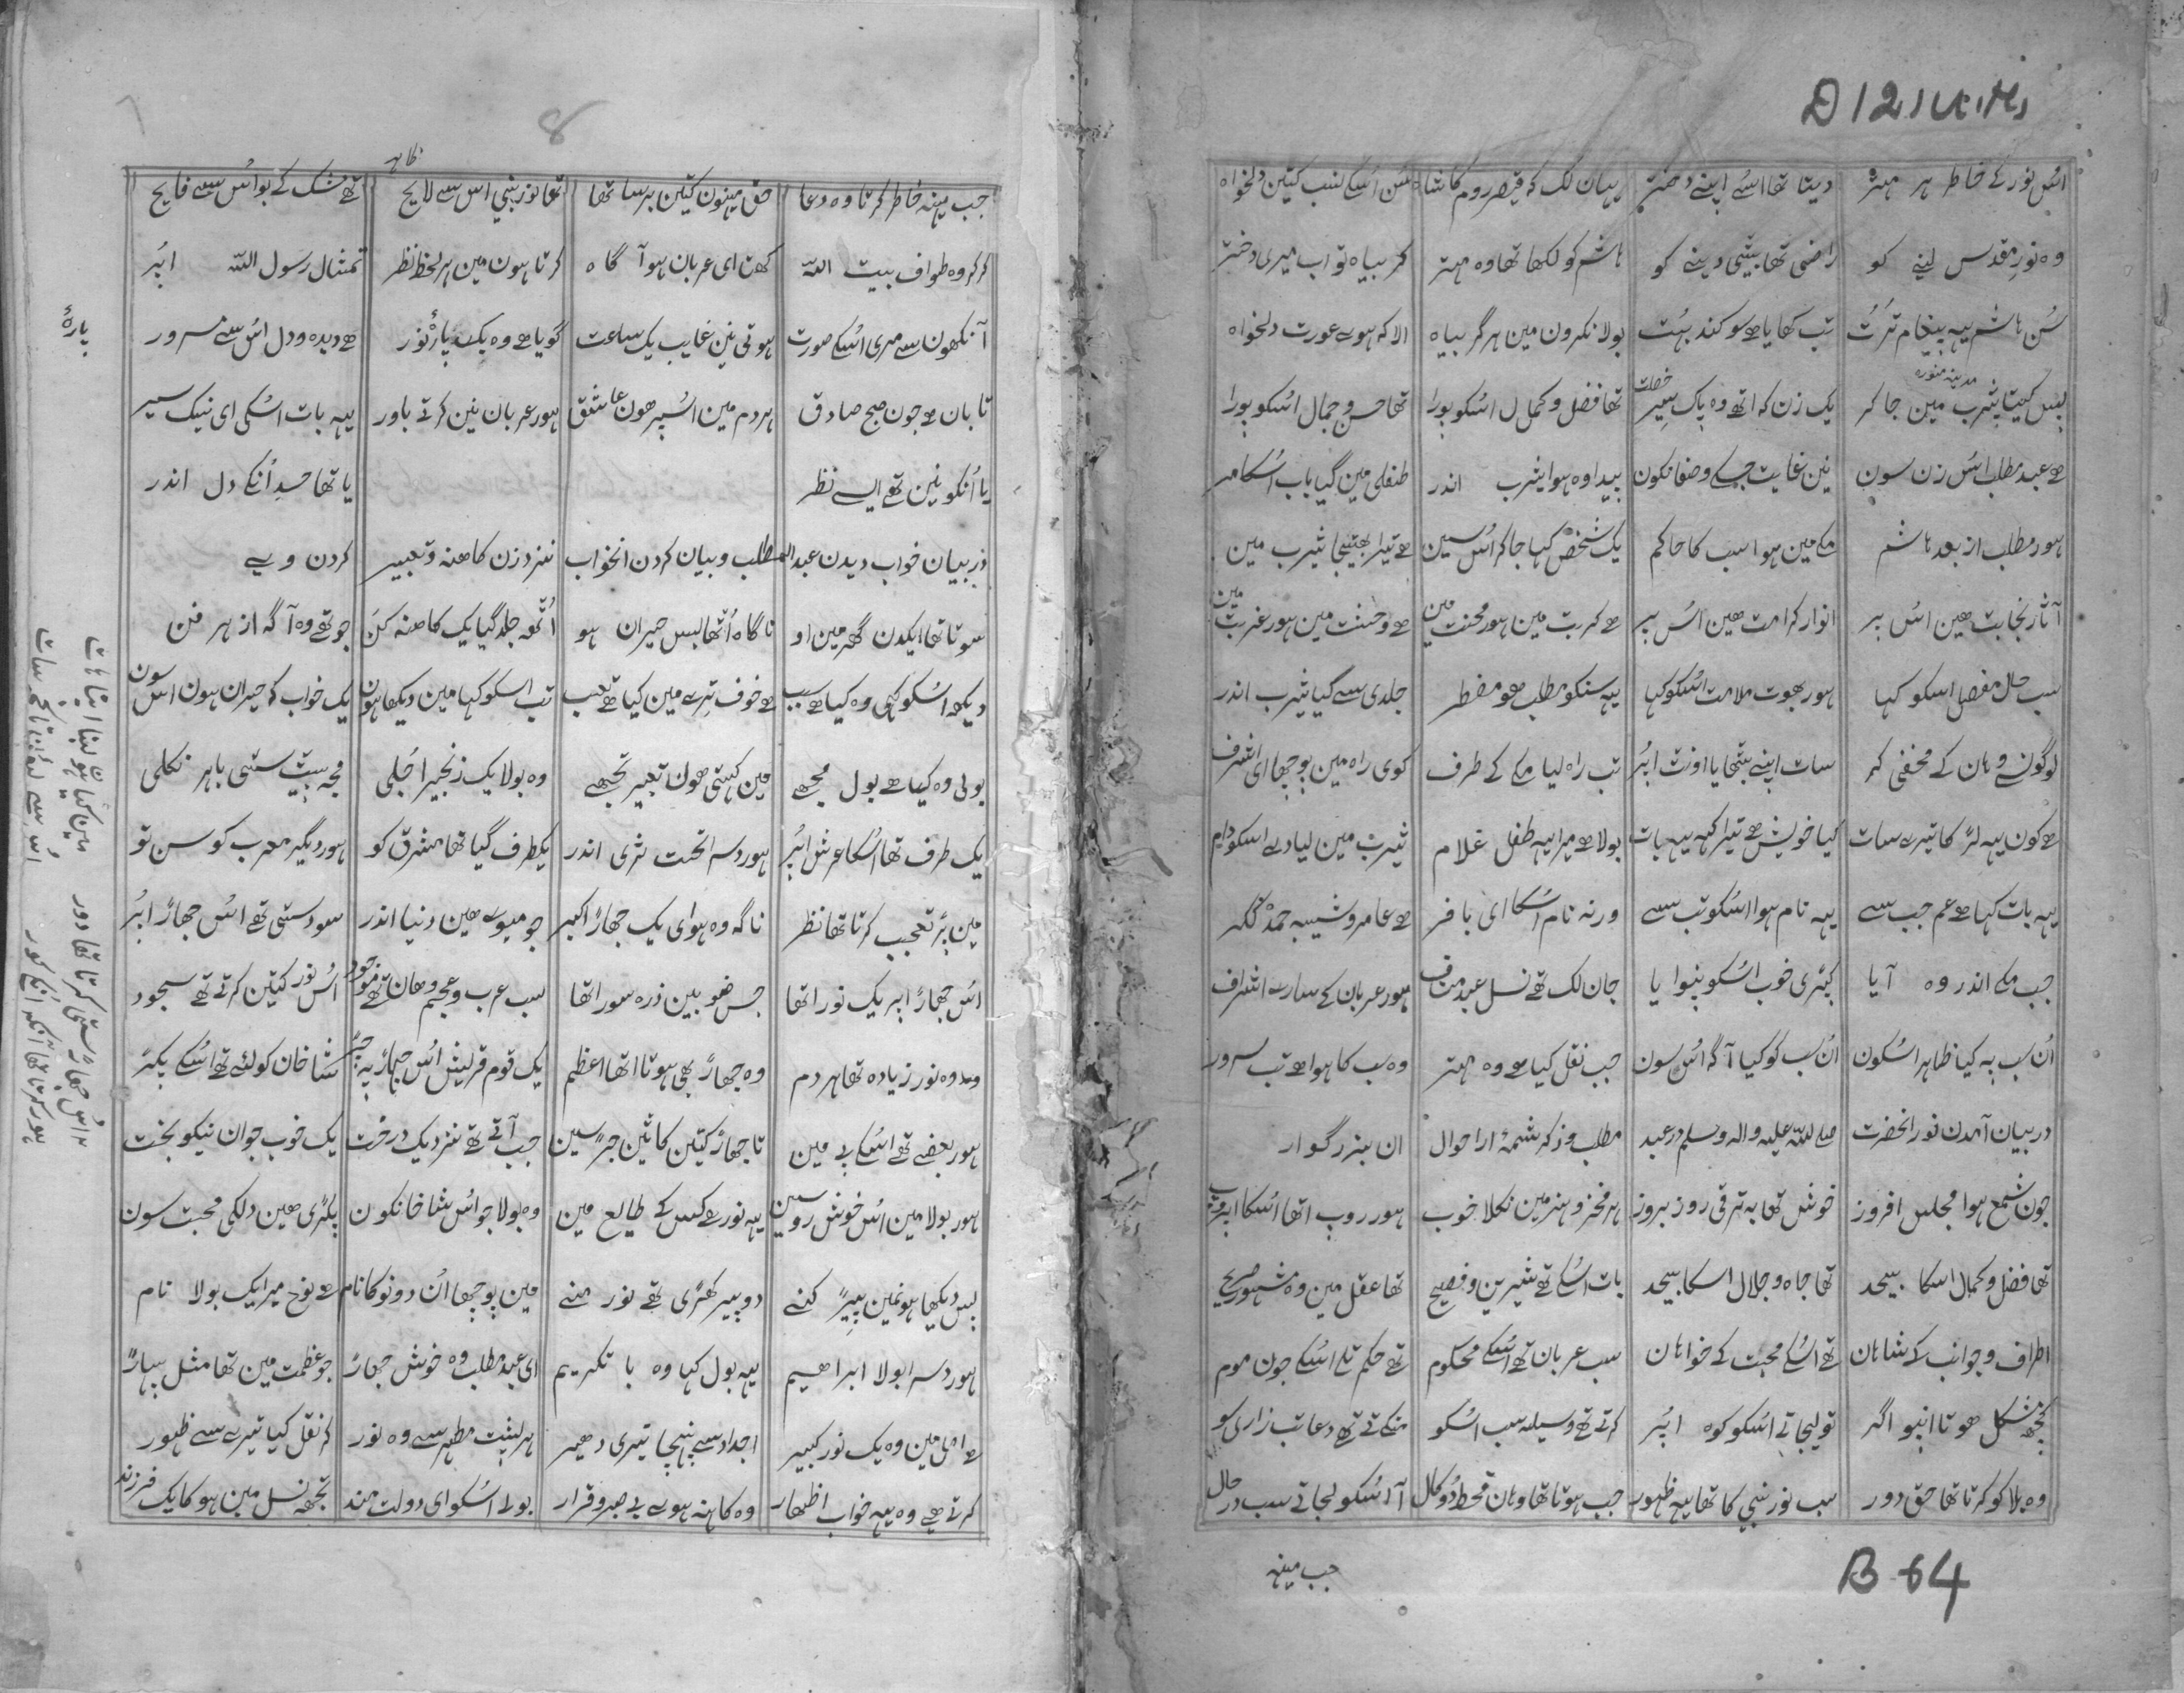 D121
اس نور کے خاطر ہر مہتر دیتا تھا اسے اپنے دختر یہان لک کہ قیصر روم کا شاہ سن اسکے نسب کتین دلخواہ
وہ نور مقدس لینے کو راضی تھا بیٹی دینے کو ہاشم کو لکھا تھا وہ مہتر کر بیاہ تو اب میری دختر
سن ہاشم یہہ پیغام ترت تب کھایا ھے سوکند بہت بولا نکرون مین ہرگز بیاہ الا کہ ہوے عورت دلخواہ
مدینہ منورہ
پس کیتا یثرب مین جا کر یک زن کہ اتھی وہ پاک سیر تھا فضل و کمال اسکو پورا تھا حسن و جمال اسکو پورا
ھے عبد مطلب اس زن سون نین غایت جسکے وصفا نکون پیدا وہ ہوا یثرب اندر طفلی مین گیا باپ اسکا مر
ہور مطلب از بعد ہاشم مکے مین ہوا سب کا حاکم یک شخص کہا جا کر اس سین ھے تیرا بھتیجا یثرب مین
آثار نجابت ھین اس پر انوار کرامت ھین اس پر ھے کربت مین ہور محنت مین ھے وحشت مین ہور غربت مین
سب حال مفصل اسکو کہا ہور بھوت ملامت اسکو کہا یہہ سنکو مطلب ھو مضطر جلدی سے گیا یثرب اندر
لوگون سے وہان کے مخفی کر سات اپنے بٹھایا اونٹ اپر تب راہ لیا مکے کے طرف کوی راہ مین پوچھا ای اشرف
ھے کون یہہ لڑکا تیرے سات کیا خویش ھے تیرا کہہ یہہ بات بولا ھے میرا یہہ طفل غلام یثرب مین لیا دے اسکو دام
یہہ بات کہا ھے عم جب سے یہہ نام ہوا اسکو تب سے ورنہ نام اسکا ای با فر ھے عامر و شیبہ حمد مگر
جب مکے اندر وہ آیا کپڑی خوب اسکو پنوایا جان لک تھے نسل عبد مناف ہور عربان کے سارے اشراف
ان سب پہ کیا ظاہر اسکون ان سب کو کیا آگہ اس سون جب نقل کیا ھے وہ مہتر وہ سب کا ہوا ھے تب سرور
در بیان آمدن نور آنحضرت صلی اللہ علیہ والہ وسلم در عبد مطلب و ذکر شمۂ از احوال ان بزرگوار
جون شمع ہوا مجلس افروز خوش تھا بہ ترقی روز بروز ہر فخر و ہنر مین نکلا خوب ہور روپ اتھا اسکا
تھا فضل و کمال اسکا بیحد تھا جاہ و جلال اسکا بیحد بات اسکے تھے شیرین و فصیح تھا عقل مین وہ مشہور صریح
اطراف و جوانب کے شاہان تھے اسکے محبت کے خواہان سب عربان تھے اسکے محکوم تھے حکم تلے اسکے جون موم
کچھ مشکل ھوتا انپو اگر تو لیجاتے اسکو کوہ اپر کرتے تھے وسیلہ سب اسکو منگتے تھے دعا تب زاری سو
وہ بلا کو کرتا تھا حق دور سب نور نبی کا تھا یہہ ظہور جب ہوتا تھا وہان قحط و کال آ اسکو لجاتے سب در حال
جب مینہہ
B 64
8
جب مینہہ خاطر کرتا وہ دعا حق مینہون کتین برساتا تھا تھا نور نبی اس سے لایح تھے مشک کے بو اس سے فایح
ظاہر
کر کر وہ طواف بیت اللہ کھتا ای عربان ہو آگاہ کرتا ہون مین ہر لحظہ نظر تمثال رسول اللہ اپر
آنکھون سے مری اسکے صورت ہوتی نین غایب یک ساعت گویا ھے وہ یک پارۂ نور ھے دیدہ و دل اس سے مسرور
پارۂ
تابان ھے جون صبح صادق ہر دم مین اسپر ھون عاشق ہور عربان نین کرتے باور یہہ بات اسکی ای نیک سیر
یا انکو نین تھے ایسے نظر یا تھا حسد انکے دل اندر
در بیان خواب دیدن عبد المطلب و بیان کردن آنخواب نزد زن کاھنہ و تعبیر کردن وے
سوتا تھا ایکدن گھر مین او ناگاہ اٹھا بس حیران ہو اٹھہ جلد گیا یک کاھنہ کن جو تھے وہ آگہ از ہر فن
دیکھہ اسکو کہی وہ کیا ھے سبب ھے خوف ترے مین کیا ھے تعب تب اسکو کہا مین دیکھا ہون یک خواب کہ حیران ہون اس سون
بولی وہ کیا ھے بول مجھے مین کہتی ھون تعبیر تجھے وہ بولا یک زنجیر اجلی مجہ پیٹ ستی باہر نکلی
یک طرف تھا اسکا عرش اپر ہور دسرا تحت ثری اندر یکطرف گیا تھا مشرق کو ہور دیگر مغرب کو سن تو
مین پر تعجب کرتا تھا نظر ناگہ وہ ہوای یک جھاڑ اکبر جو میوے ھین دنیا اندر سو دستی تھے اس جھاڑ اپر
اس جھاڑ اپر یک نور اتھا جس ضو بین ذرہ سور اتھا سب عرب و عجم وھان تھے موجود اس نور کتین کرتے تھے سجود
وہ نور زیادہ تھا ہر دم وہ جھاڑ بھی ہوتا اتھا اعظم یک قوم قریش اس جھاڑ پہ چڑ شاخان کو لئے تھے اسکے پکڑ
ہور بعضے تھے اسکے پے مین تا جھاڑ کتین کاٹین جڑ سین جب آتے تھے نزدیک درخت یک خوب جوان نیکو بخت
ہور بولا مین اس خوش رو سین یہہ نور ھے کس کے طالع مین وہ بولا جو اس شاخا نکون پکڑی ھین دلکی محبت سون
پس دیکھا ہون مین پیڑ کنے دو پیر کھڑی تھے نور منے مین پوچھا ان دونو کا نام ھے نوح میرا یک بولا نام
ہور دسرا بولا ابراھیم یہہ بول کہا وہ با تکریم ای عبد مطلب وہ خوش جھاڑ جو عظمت مین تھا مثل پہاڑ
ھے اصل مین وہ یک نور کبیر اجداد سے پہنچا تیری دھیر ہر پشت مطہر سے وہ نور کر نقل کیا تیرے سے ظہور
کرتے ھے وہ یہہ خواب اظہار وہ کاہنہ ہوے بے صبر و قرار بولے اسکو ای دولت مند تجھہ نسل مین ہوگا یک فرزند
اس جھاڑ ستی کرتا تھا دور
ہور کرتا تھا آنکہ انکے کور